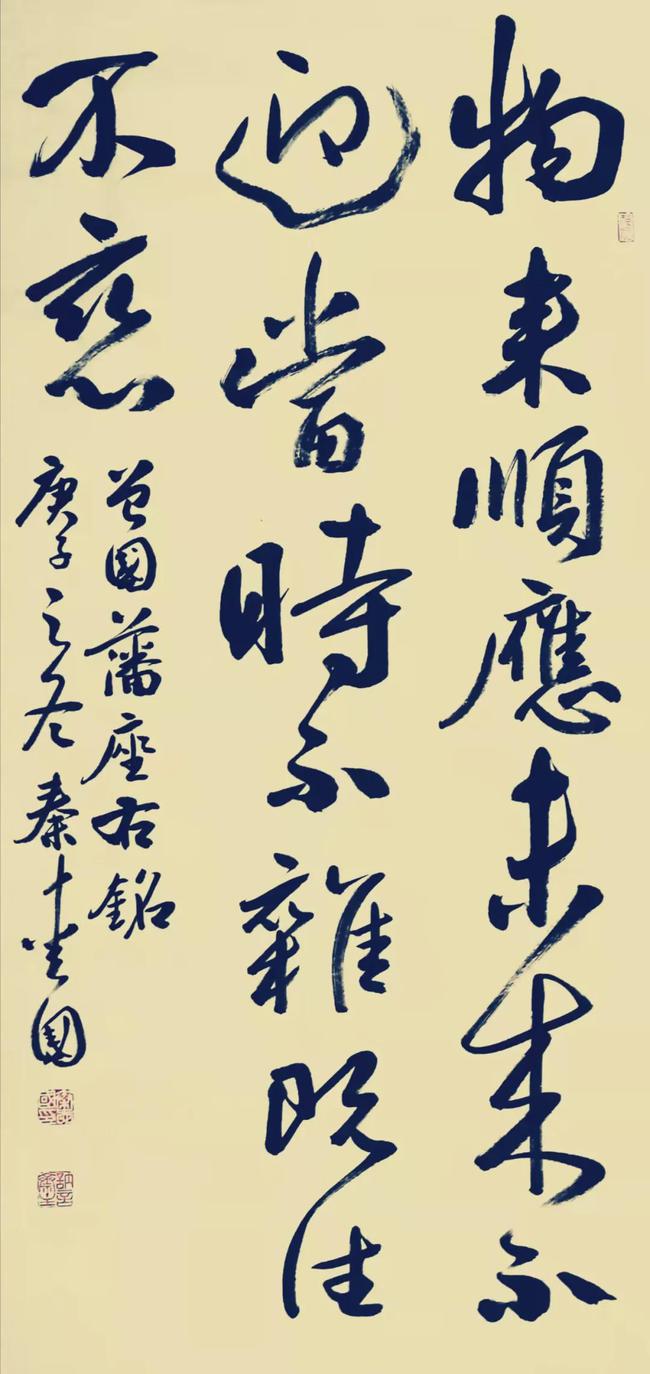 物来順應未来不
迎當時不雜既往
不恋
曾國藩座右銘
庚子之冬秦國